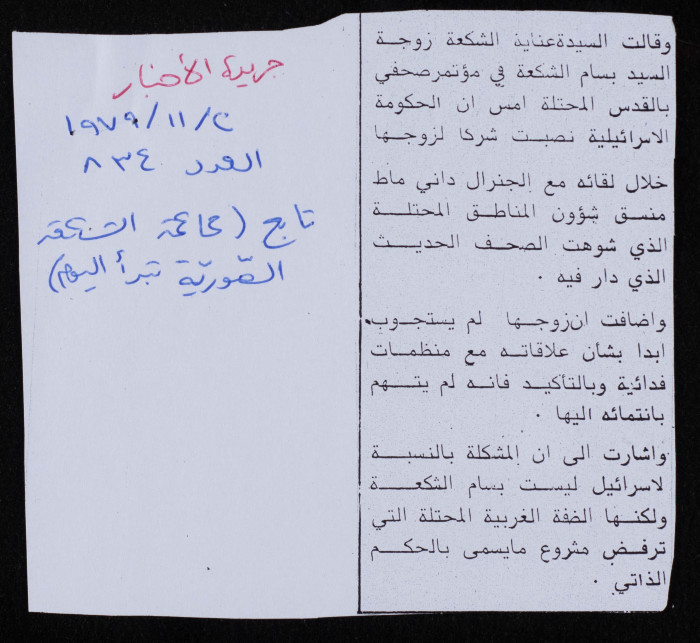 جريدة الأخبار
١٩٧٩/١١/٢٠
العدد ٨٣٤
تابع (محاكمة الشكعة
الصورية تبدأ اليوم)
وقالت السيدة عناية الشكعة زوجة
السيد بسام الشكعة في مؤتمر صحفي
بالقدس المحتلة امس ان الحكومة
الاسرائيلية نصبت شركا لزوجها
خلال لقائه مع الجنرال داني ماط
منسق شؤون المناطق المحتلة
الذي شوهت الصحف الحديث
الذي دار فيه .
واضافت ان زوجها لم يستجوب
ابدا بشأن علاقاته مع منظمات
فدائية وبالتأكيد فانه لم يتهم
بانتمائه اليها .
واشارت الى ان المشكلة بالنسبة
لاسرائيل ليست بسام الشكعة
ولكنها الضفة الغربية المحتلة التي
ترفض مشروع مايسمى بالحكم
الذاتي .